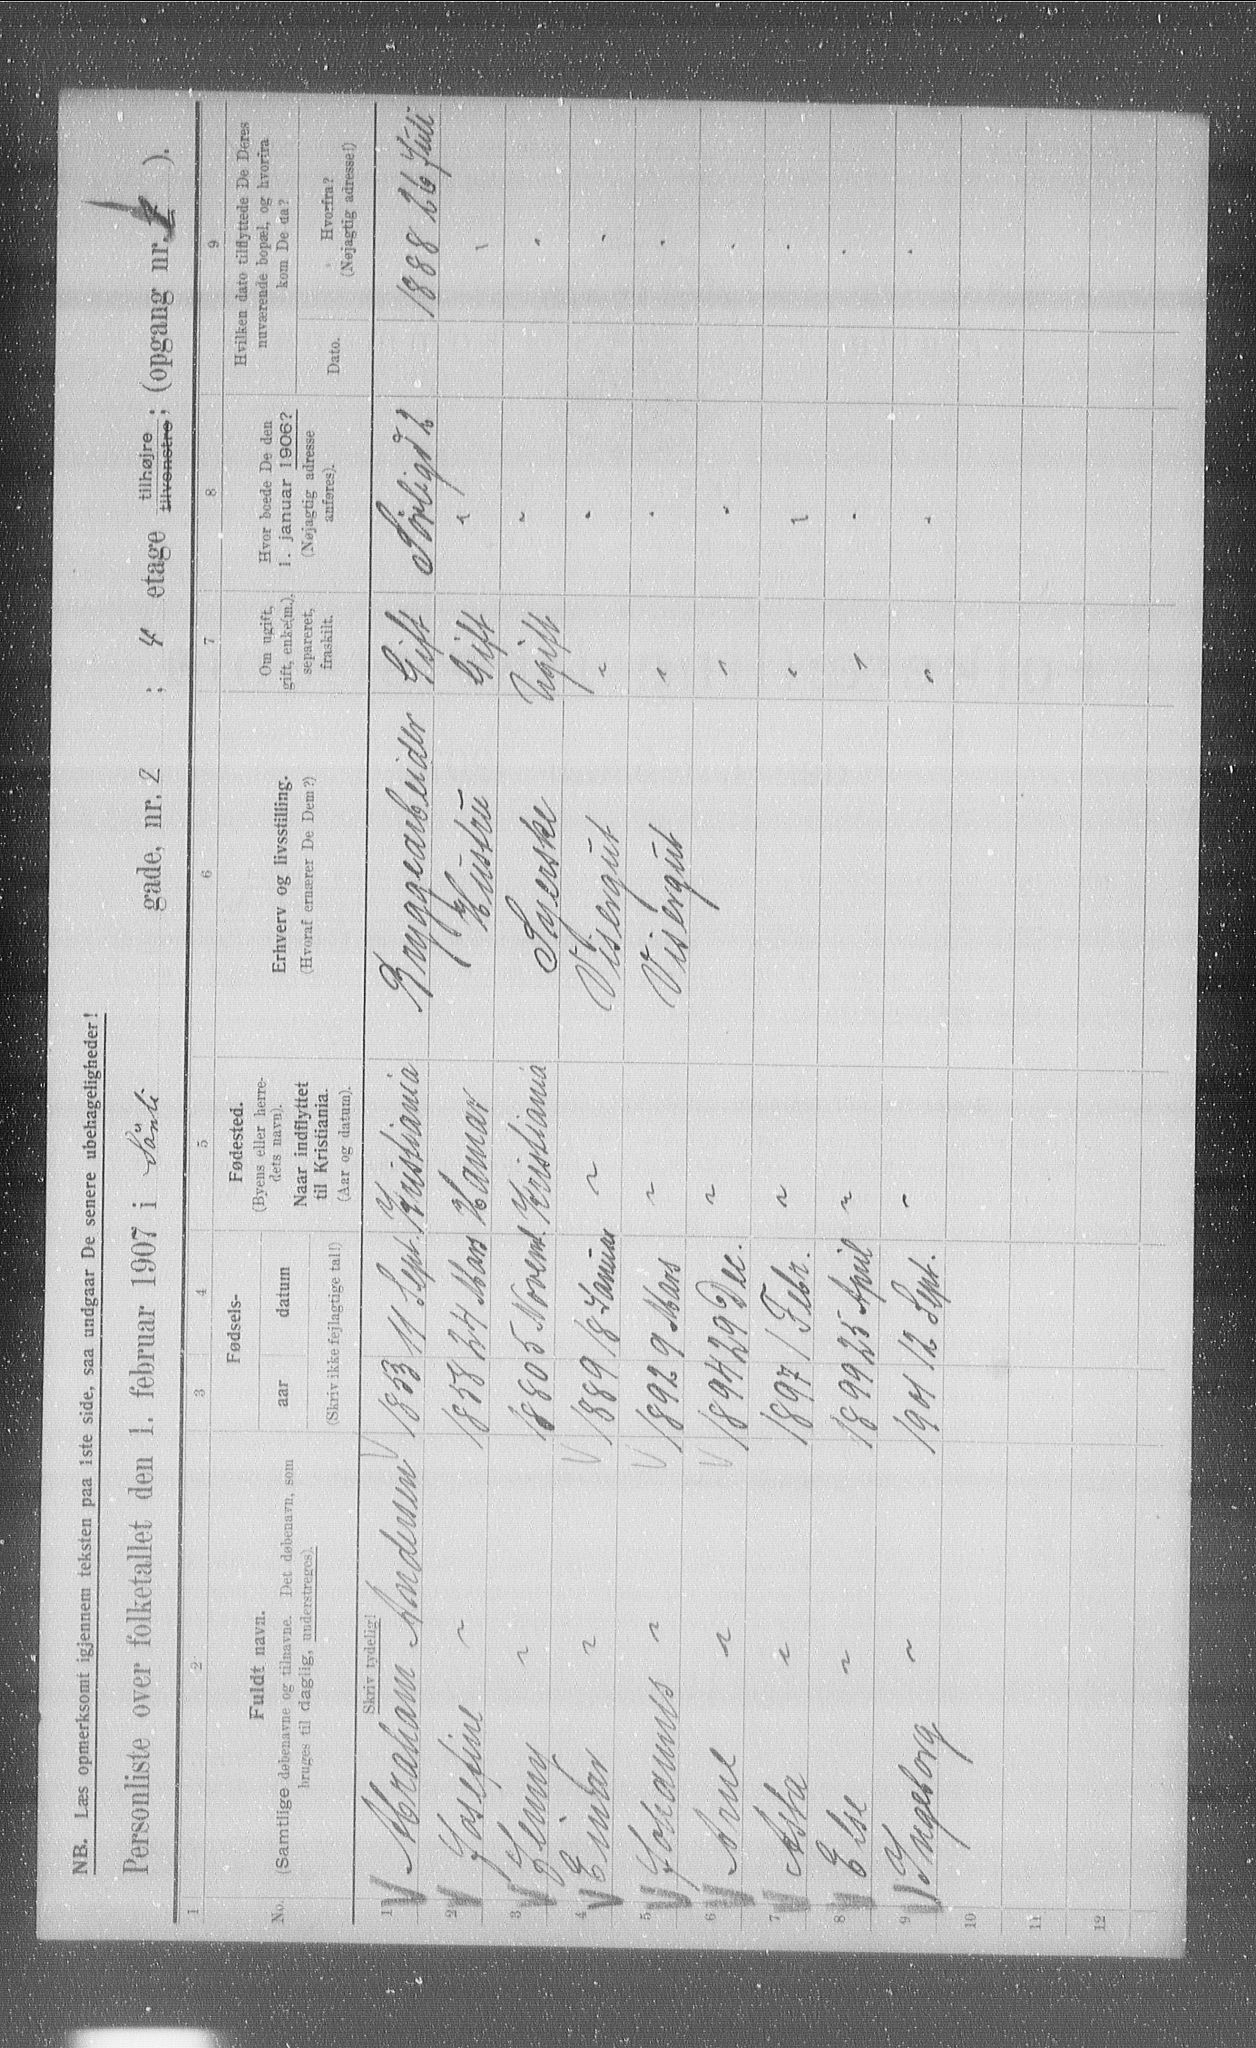 NB. Læs opmerksomt igjennem teksten paa 1ste side, saa undgaar De senere ubehageligheder!
Personliste over folketallet den 1. februar 1907 i gade, nr. 2 ; 4 etage tilhøjre tilvenstre; (opgang nr. ).
1 2 3 4 5 6 7 8 9
No. Fuldt navn. (Samtlige døbenavne og tilnavne. Det døbenavn, som bruges til daglig, understreges).
Fødsels- aar datum (Skriv ikke fejlagtige tal!)
Fødested. (Byens eller herredets navn). Naar indflyttet til Kristiania. (Aar og datum).
Erhverv og livsstilling. (Hvoraf ernærer De Dem?)
Om ugift, gift, enke(m.), separeret, fraskilt.
Hvor boede De den 1. januar 1906? (Nøjagtig adresse anføres).
Hvilken dato tilflyttede De Deres nuværende bopæl, og hvorfra kom De da? Dato. Hvorfra? (Nøjagtig adresse!)
Skriv tydelig!
1 Abraham Andersen 1853 11 Sept. Kristiania Bryggearbeider Gift 1888 26 Juli
2 Josefine " 1858 24 Mars Hamar Hustru Gift " "
3 Jenny " 1880 5 Novemb. Kristiania Syerske Ugift " "
4 Einar " 1889 18 Januar " Visergut " " "
5 Johannes " 1892 9 Mars " Visergut " " "
6 Arne " 1894 29 Dec. " " " "
7 Asta " 1897 1 Febr. " " " "
8 Else " 1899 25 April " " " "
9 Ingeborg " 1901 12 Sept. " " " "
10
11
12